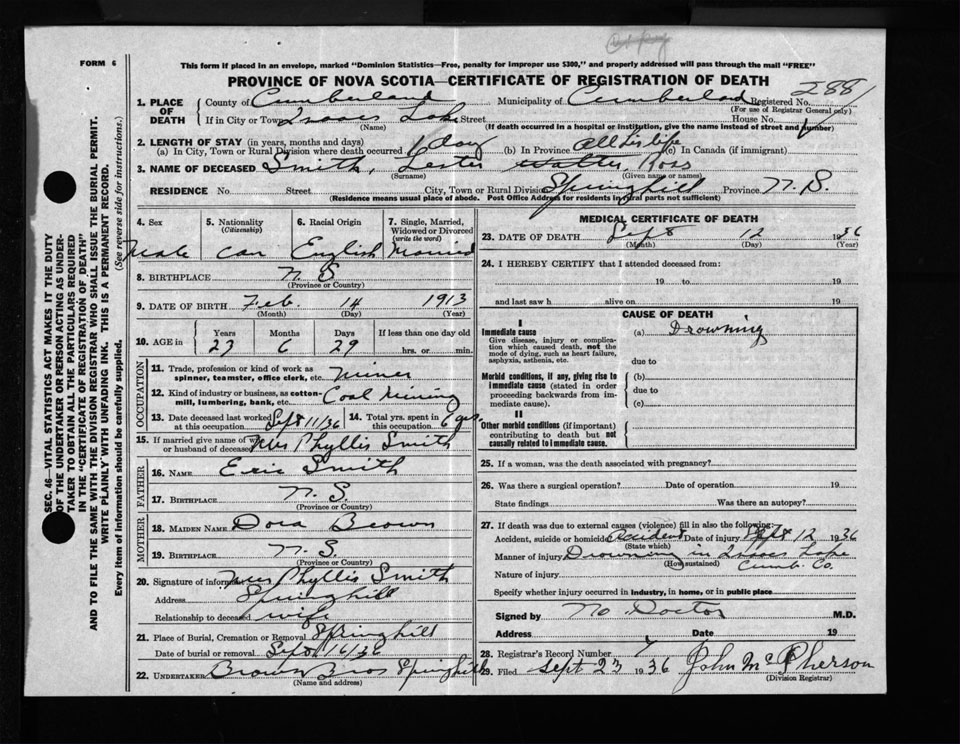 FORM 6
This form if placed in an envelope, marked "Dominion Statistics—Free, penalty for improper use $300," and properly addressed will pass through the mail "FREE"
PROVINCE OF NOVA SCOTIA—CERTIFICATE OF REGISTRATION OF DEATH
288
1. PLACE OF DEATH
County of Cumberland Municipality of Cumberland Registered No.
(For use of Registrar General only)
If in City or Town Lake Street House No.
(Name) (If death occurred in a hospital or institution, give the name instead of street and number)
2. LENGTH OF STAY (in years, months and days)
(a) In City, Town or Rural Division where death occurred 1 day (b) In Province All his life (c) In Canada (if immigrant)
3. NAME OF DECEASED Smith, Lester Walter, Ross
(Surname) (Given name or names)
RESIDENCE No. Street City, Town or Rural Division Springhill Province N. S.
(Residence means usual place of abode. Post Office Address for residents in rural parts not sufficient)
4. Sex
Male
5. Nationality
(Citizenship)
Can
6. Racial Origin
English
7. Single, Married, Widowed or Divorced
(write the word)
Married
8. BIRTHPLACE N. S.
(Province or Country)
9. DATE OF BIRTH Feb. 14 1913
(Month) (Day) (Year)
10. AGE in
Years Months Days If less than one day old
23 6 29 hrs. or min.
OCCUPATION
11. Trade, profession or kind of work as
spinner, teamster, office clerk, etc. Miner
12. Kind of industry or business, as cotton-
mill, lumbering, bank, etc. Coal Mining
13. Date deceased last worked
at this occupation Sept 11/36
14. Total yrs. spent in
this occupation 6 yrs.
15. If married give name of wife
or husband of deceased Mrs Phyllis Smith
FATHER
16. Name Eric Smith
17. Birthplace N. S.
(Province or Country)
MOTHER
18. Maiden Name Dora Brown
19. Birthplace N. S.
(Province or Country)
20. Signature of informant Mrs Phyllis Smith
Address Springhill
Relationship to deceased wife
21. Place of Burial, Cremation or Removal Springhill
Date of burial or removal Sept 16/36
22. UNDERTAKER Brown Bros Springhill
(Name and address)
MEDICAL CERTIFICATE OF DEATH
23. DATE OF DEATH Sept 12 1936
(Month) (Day) (Year)
24. I HEREBY CERTIFY that I attended deceased from:
19 to 19
and last saw h alive on 19
CAUSE OF DEATH
I
Immediate cause
Give disease, injury or complica-
tion which caused death, not the
mode of dying, such as heart failure,
asphyxia, asthenia, etc.
(a) Drowning
due to
Morbid conditions, if any, giving rise to
immediate cause (stated in order
proceeding backwards from im-
mediate cause).
(b)
due to
(c)
II
Other morbid conditions (if important)
contributing to death but not
causally related to immediate cause.
25. If a woman, was the death associated with pregnancy?
26. Was there a surgical operation? Date of operation 19
State findings Was there an autopsy?
27. If death was due to external causes (violence) fill in also the following:
Accident, suicide or homicide Accident Date of injury Sept 12 1936
(State which)
Manner of injury Drowning in Lake
(How sustained) Cumb. Co.
Nature of injury
Specify whether injury occurred in industry, in home, or in public place
Signed by No Doctor M.D.
Address Date 19
28. Registrar's Record Number
29. Filed Sept 23 1936 John McPherson
(Division Registrar)
SEC. 46—VITAL STATISTICS ACT MAKES IT THE DUTY
OF THE UNDERTAKER OR PERSON ACTING AS UNDER-
TAKER TO OBTAIN ALL THE PARTICULARS REQUIRED
IN THE "CERTIFICATE OF REGISTRATION OF DEATH"
AND TO FILE THE SAME WITH THE DIVISION REGISTRAR WHO SHALL ISSUE THE BURIAL PERMIT.
WRITE PLAINLY WITH UNFADING INK. THIS IS A PERMANENT RECORD.
Every item of information should be carefully supplied. (See reverse side for instructions.)